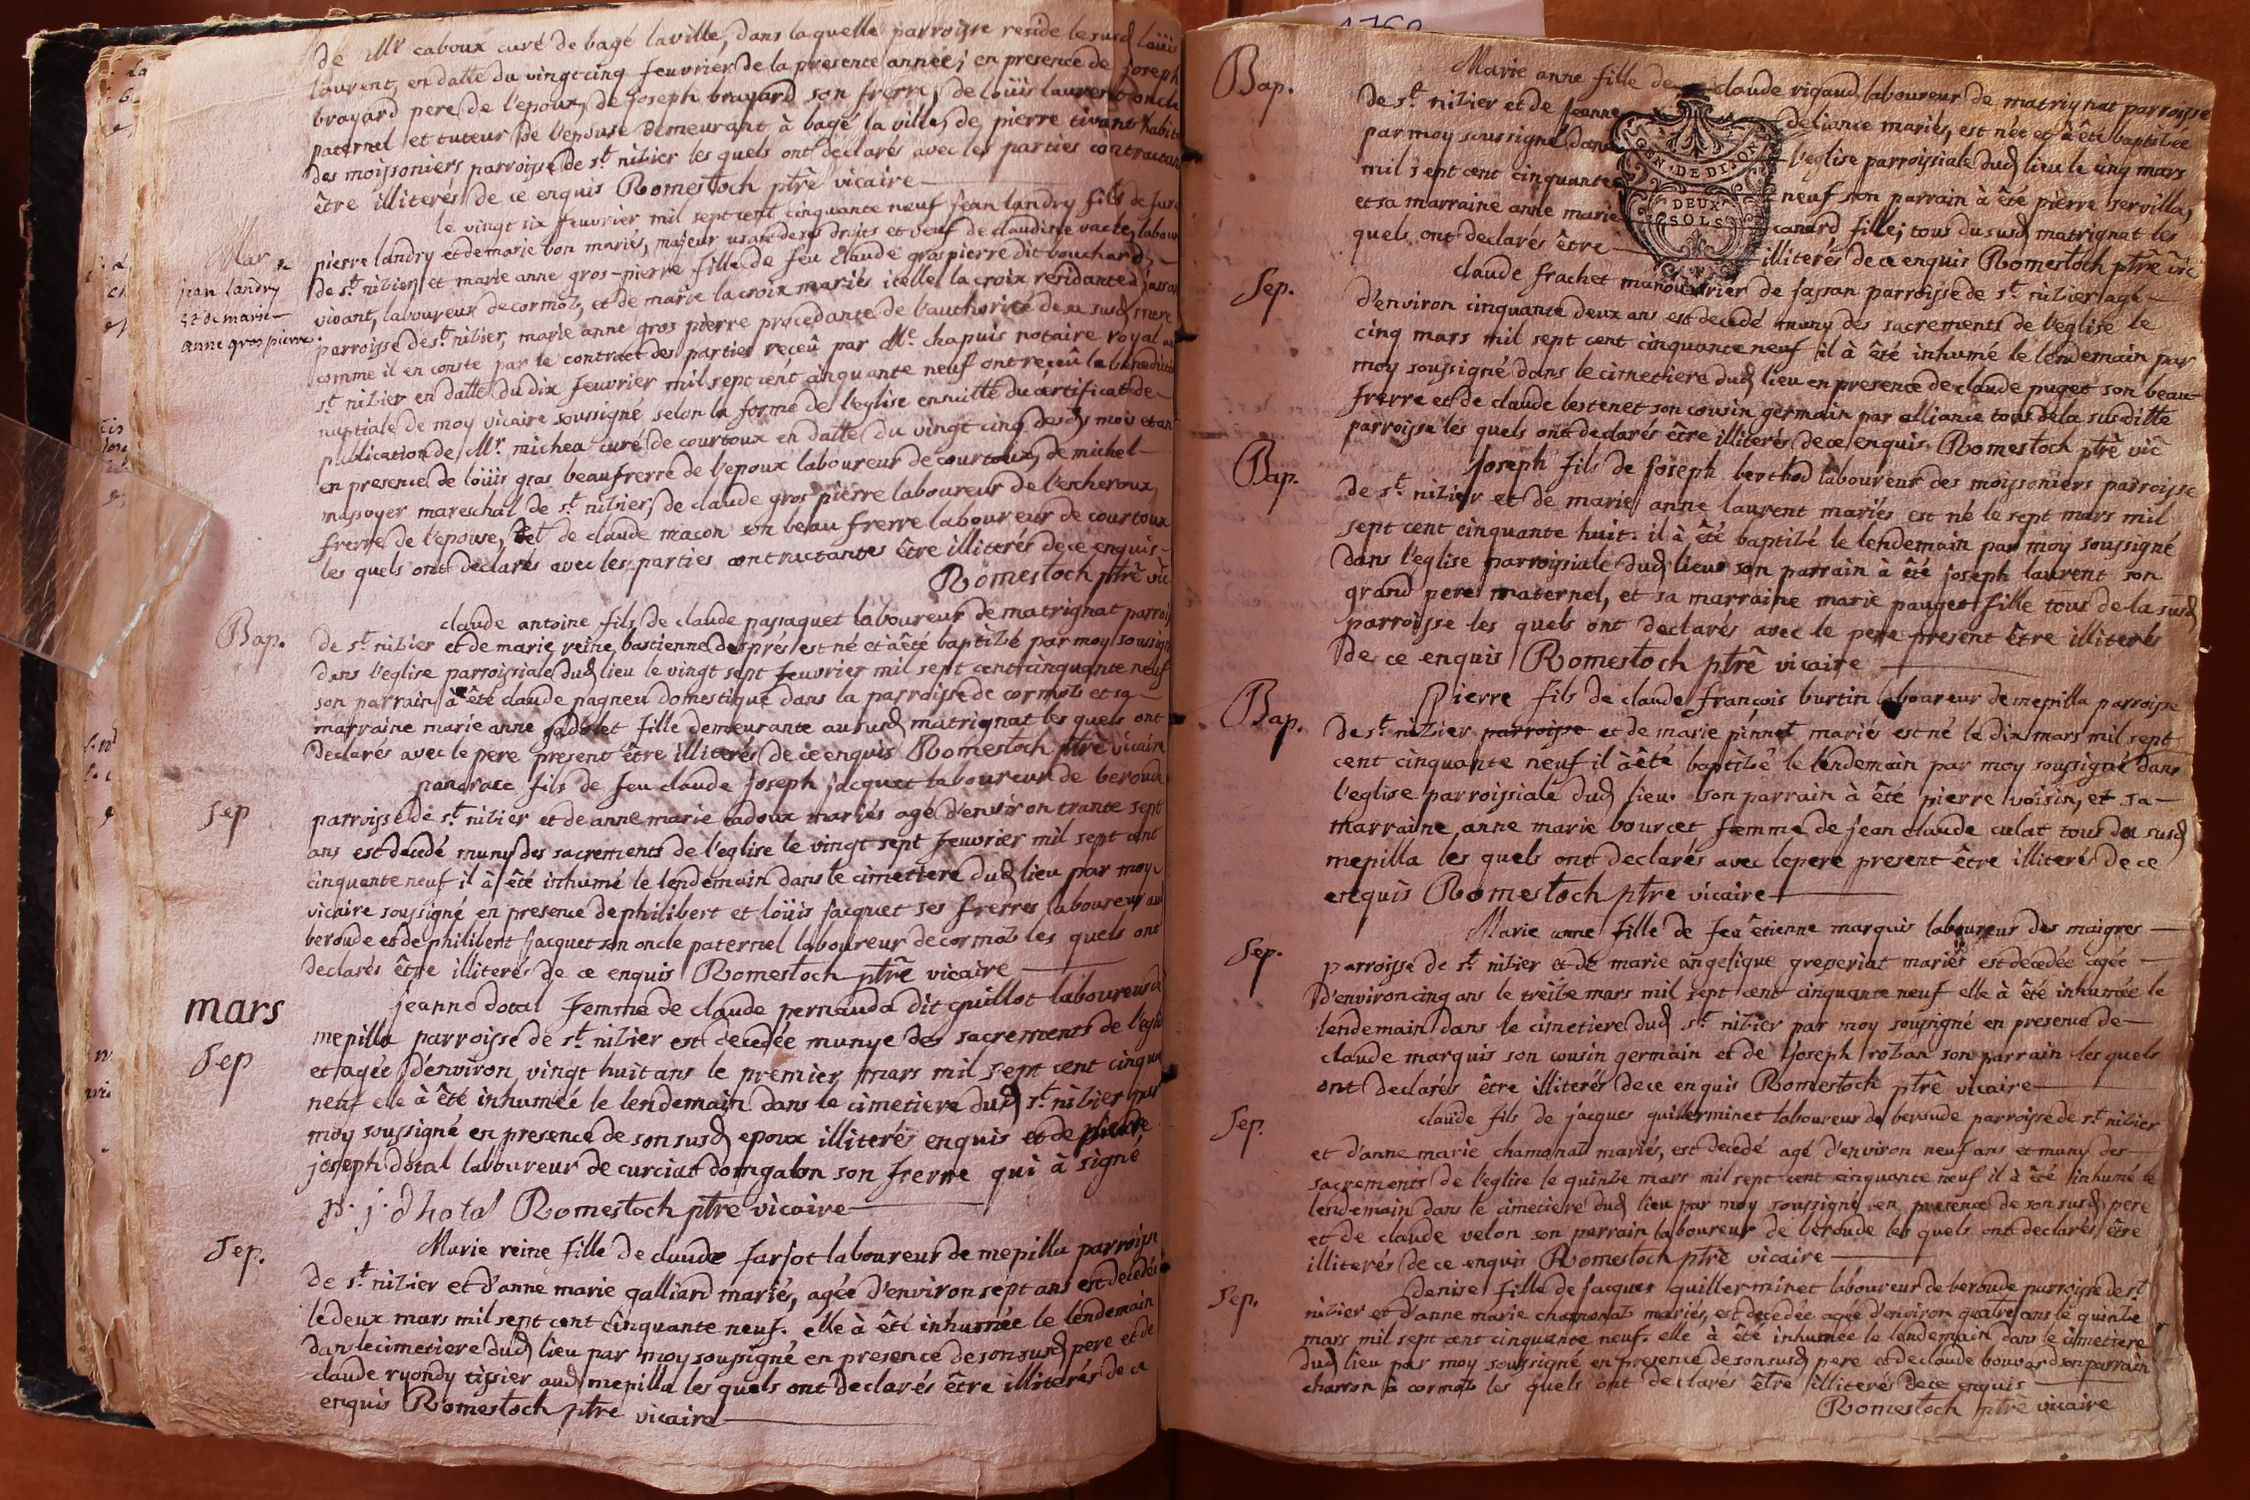 de Mr caboux curé de bagé la ville, dans laquelle parroisse reside le susd loüis
laurent, en datte du vingt cinq feuvrier de la presente année; en presence de joseph
brayard pere de l'epoux, de joseph brayard son frerre, de loüis laurent oncle
paternel et tuteur de l'epouse demeurant à bagé la ville, de pierre tivant habit
des moissoniers parroisse de st nizier les quels ont declarés avec les parties contractan
être illiterés de ce enquis Romestoch ptre vicaire
Mar
jean landry
Et de marie
anne gros pierre
le vingt six feuvrier mil sept cent cinquante neuf jean landry fils de fu
pierre landry et de marie bon mariés, majeur usant de ses droits et veuf de claudine vacle, labou
de st nizier, et marie anne gros-pierre fille de feu claude gros pierre dit bouchard,
vivant, laboureur de cormoz, et de marie la croix mariés icelle la croix residante à
parroisse de st nizier, marie anne gros pierre procedante de l'authorité de sa susd mere
comme il en conste par le contract des parties receû par Me chapuis notaire royal a
st nizier en datte du dix feuvrier mil sept cent cinquante neuf ont reçeû la benedicti
nuptiale de moy vicaire soussigné selon la forme de l'eglise ensuitte du certificat de
publication de Mr michea curé de courtoux en datte du vingt cinq desds mois et an
en presence de loüis gras beaufrerre de l'epoux laboureur de courtoux, de michel
mareschal de st nizier, de claude gros pierre laboureur de l'escheroux,
frerre de l'epouse, et de claude macon son beau frerre laboureur de courtoux
les quels ont declarés avec les parties contractantes être illiterés de ce enquis
Romestoch ptre vic
Bap.
claude antoine fils de claude passaquet laboureur de matrignat parroi
de st nizier et de marie reine bastienne després est né et à été baptizé par moy soussign
dans l'eglise parroissiale dud lieu le vingt sept feuvrier mil sept cent cinquante neuf
son parrain à été claude pagneu domestique dans la parroisse de cormoz et sa
marraine marie anne gadolet fille demeurante au susd matrignat les quels ont
declarés avec le pere present être illiterés de ce enquis Romestoch ptre vicaire
Sep
pancrace fils de feu claude joseph jacquet laboureur de beroude
parroisse de st nizier et de anne marie cadoux mariés agé d'environ trante sept
ans est decedé muny des sacrements de l'eglise le vingt sept feuvrier mil sept cent
cinquante neuf il à été inhumé le lendemain dans le cimetiere dud lieu par moy
vicaire soussigné en presence de philibert et loüis jacquet ses frerres laboureur au
beroude et de philibert jacquet son oncle paternel laboureur de cormoz les quels ont
declarés être illiterés de ce enquis Romestoch ptre vicaire
mars
Sep
jeanne dotal femme de claude pernauda dit guillot laboureur de
mepilla parroisse de st nizier est decedée munye des sacrements de l'egli
et agée d'environ vingt huit ans le premier mars mil sept cent cinqua
neuf elle à été inhumée le lendemain dans le cimetiere dud st nizier par
moy soussigné en presence de son susd epoux illiterés enquis et de pierre
joseph dotal laboureur de curciat dongalon son frerre qui à signé
p. j. dhotal Romestoch ptre vicaire
Sep.
Marie reine fille de claude farjot laboureur de mepilla parroisse
de st nizier et d'anne marie galliard mariés, agée d'environ sept ans est decedée
le deux mars mil sept cent cinquante neuf. elle à été inhumée le lendemain
dans le cimetiere dud lieu par moy soussigné en presence de son susd pere et de
claude ryondy tissier aud mepilla les quels ont declarés être illiterés de ce
enquis Romestoch ptre vicaire
Bap.
Marie anne fille de claude rigaud laboureur de matrignat parroisse
de st nizier et de jeanne deliance mariés, est née et à été baptizée
par moy soussigné dans l'eglise parroissiale dud lieu le cinq mars
mil sept cent cinquante neuf son parrain à été pierre servilla,
et sa marraine anne marie canard fille; tous du susd matrignat les
quels ont declarés être illiterés de ce enquis Romestoch ptre vic
GEN. DE DIJON
DEUX
SOLS
Sep.
claude frachet manouvrier de sassan parroisse de st nizier agé
d'environ cinquante deux ans est decedé muny des sacrements de l'eglise le
cinq mars mil sept cent cinquante neuf il à été inhumé le lendemain par
moy soussigné dans le cimetiere dud lieu en presence de claude puget son beau
frerre et de claude lestenet son cousin germain par alliance tous de la susditte
parroisse les quels ont declarés être illiterés de ce enquis Romestoch ptre vic
Bap.
Joseph fils de joseph berthod laboureur des moissoniers parroisse
de st nizier et de marie anne laurent mariés est né le sept mars mil
sept cent cinquante huit. il à été baptizé le lendemain par moy soussigné
dans l'eglise parroissiale dud lieu son parrain à été joseph laurent son
grand pere maternel, et sa marraine marie pauget fille tous de la susd
parroisse les quels ont declarés avec le pere present être illiterés
de ce enquis Romestoch ptre vicaire
Bap.
Pierre fils de claude françois burtin laboureur de mepilla parroisse
de st nizier parroisse et de marie pinnet mariés est né le dix mars mil sept
cent cinquante neuf il à été baptizé le lendemain par moy soussigné dans
l'eglise parroissiale dud lieu. son parrain à été pierre voisin, et sa
marraine anne marie bourcet femme de jean claude culat tous du susd
mepilla les quels ont declarés avec le pere present être illiteré de ce
enquis Romestoch ptre vicaire
Sep.
Marie anne fille de feu étienne marquis laboureur des maigres
parroisse de st nizier et de marie angelique greseriat mariés est decedée agée
d'environ cinq ans le treize mars mil sept cent cinquante neuf elle à été inhumée le
lendemain dans le cimetiere dud st nizier par moy soussigné en presence de
claude marquis son cousin germain et de joseph rozan son parrain les quels
ont declarés être illiterés de ce enquis Romestoch ptre vicaire
Sep.
claude fils de jacques guillerminet laboureur de beroude parroisse de st nizier
et d'anne marie chamonaz mariés, est decedé agé d'environ neuf ans et muny des
sacrements de l'eglise le quinze mars mil sept cent cinquante neuf il à été inhumé le
lendemain dans le cimetiere dud lieu par moy soussigné en presence de son susd pere
et de claude velon son parrain laboureur de beroude les quels ont declarés être
illiterés de ce enquis Romestoch ptre vicaire
Sep.
Denise fille de jacques guillerminet laboureur de beroude parroisse de st
nizier et d'anne marie chamonaz mariés, est decedée agée d'environ quatre ans le quinze
mars mil sept cent cinquante neuf. elle à été inhumée le lendemain dans le cimetiere
dud lieu par moy soussigné en presence de son susd pere et de claude bouvard son parrain
charron à cormoz les quels ont declarés être illiterés de ce enquis
Romestoch ptre vicaire